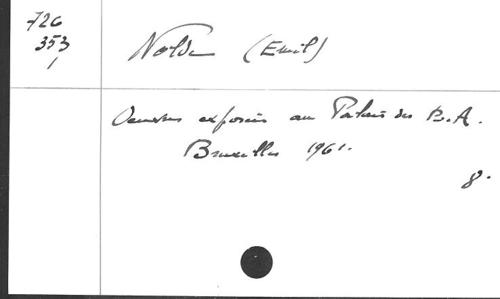 726
353
1
Nolde (Emil)
Oeuvres exposées au Palais des B.A.
Bruxelles 1961.
8.